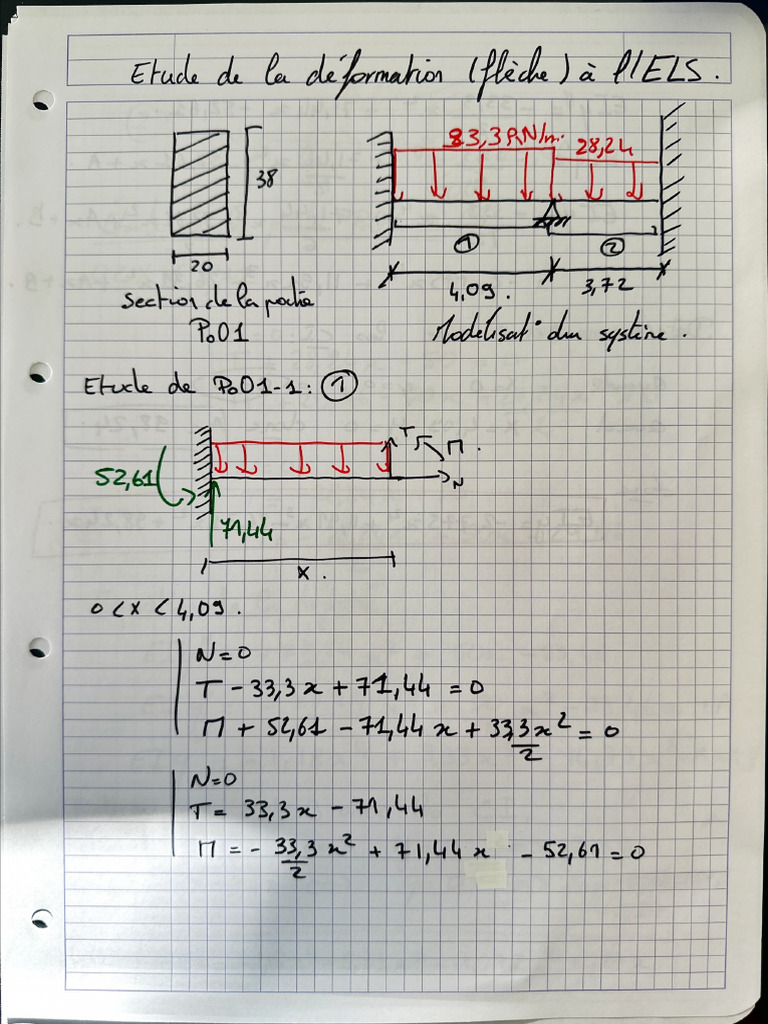 Etude de la déformation (flèche) à l'IELS.
33,3 kN/m.
28,24
38
① ②
20
4,09. 3,72
Section de la poutre
Po01
Modélisat° du système.
Etude de Po01-1: ①
T M.
52,61
N
71,44
x.
0 < x < 4,09.
N = 0
T - 33,3x + 71,44 = 0
M + 52,61 - 71,44 x + 33,3x² / 2 = 0
N = 0
T = 33,3x - 71,44
M = - 33,3 / 2 x² + 71,44x - 52,61 = 0